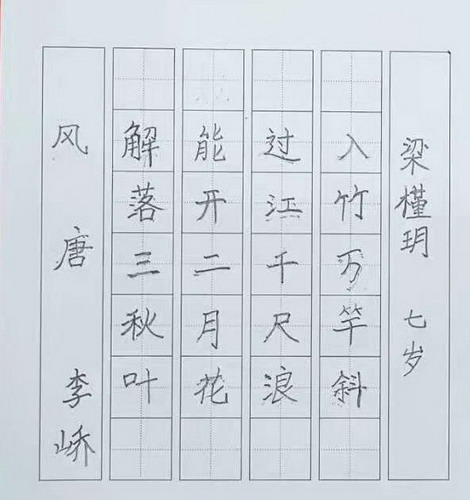 风 唐 李峤
解落三秋叶
能开二月花
过江千尺浪
入竹万竿斜
梁槿玥 七岁